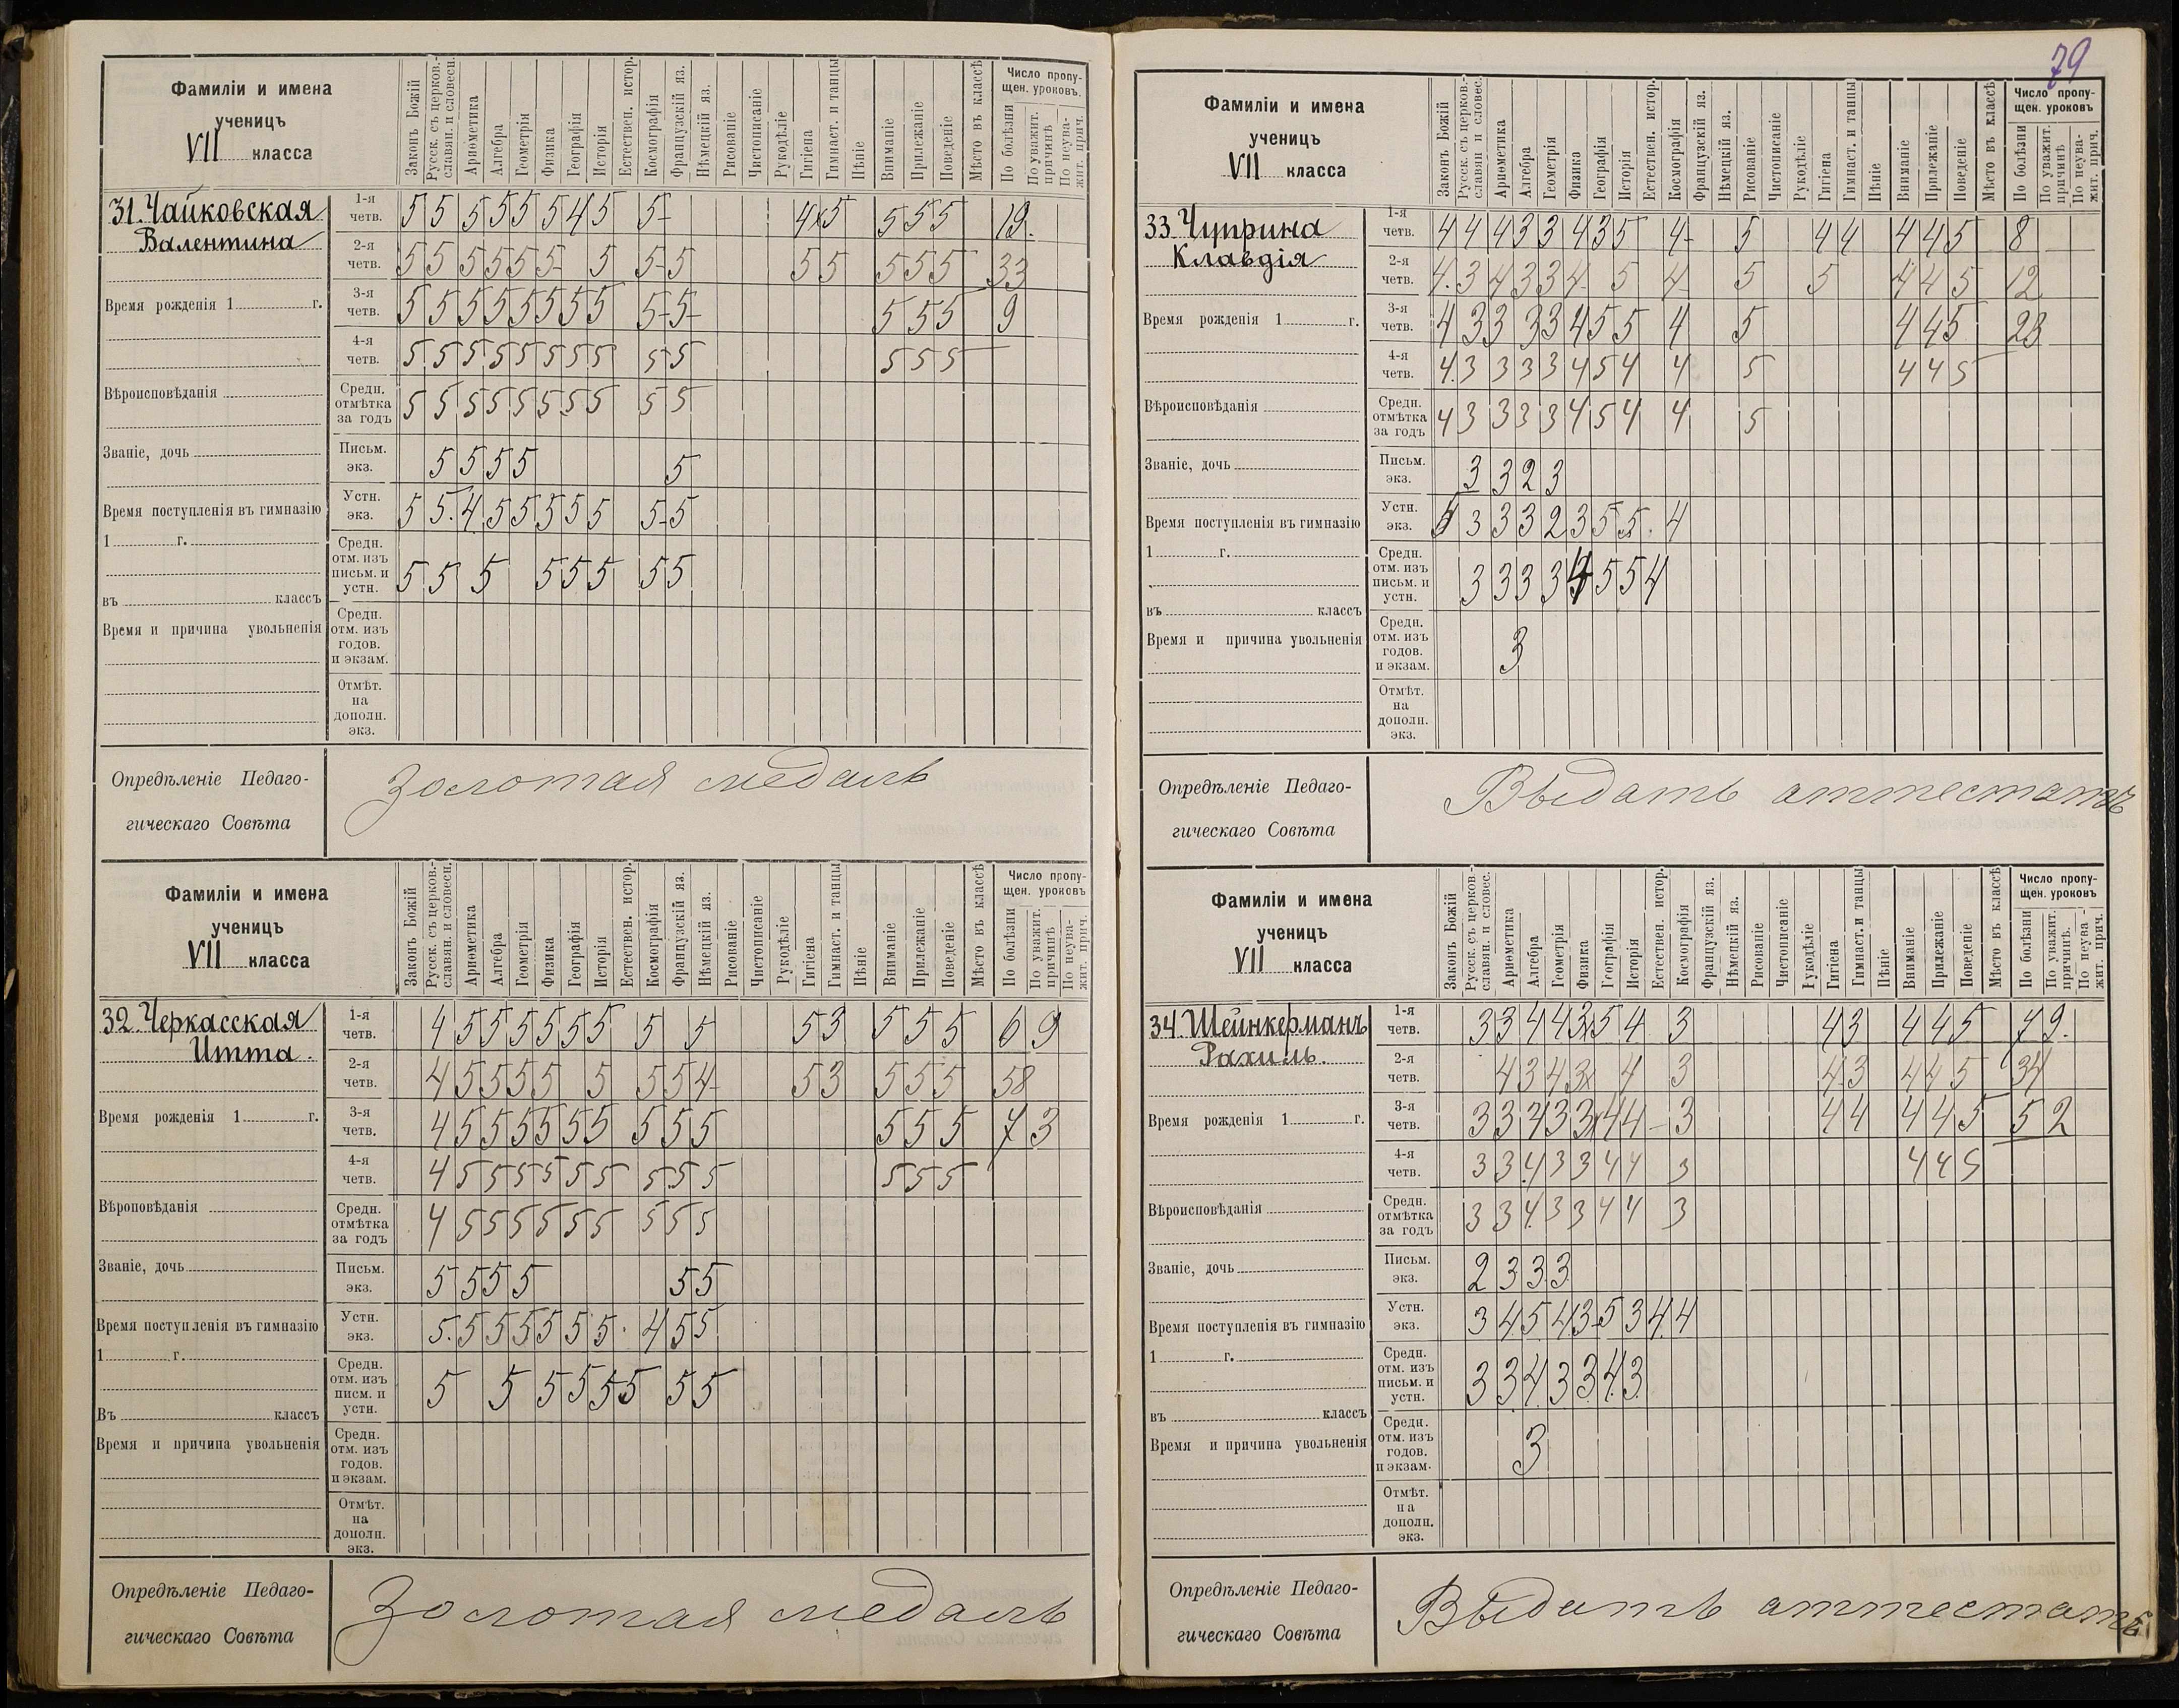 79
Фамиліи и имена
ученицъ
VII класса
Законъ Божій
Русск. съ церков.-
славян. и словесн.
Ариѳметика
Алгебра
Геометрія
Физика
Географія
Исторія
Естествен. истор.
Космографія
Французскій яз.
Нѣмецкій яз.
Рисованіе
Чистописаніе
Рукодѣліе
Гигіена
Гимнаст. и танцы
Пѣніе
Вниманіе
Прилежаніе
Поведеніе
Мѣсто въ классѣ
Число пропу-
щен. уроковъ.
По болѣзни
По уважит.
причинѣ
По неува-
жит. прич.
31. Чайковская
Валентина
Время рожденія 1 г.
Вѣроисповѣданія
Званіе, дочь
Время поступленія въ гимназію
1 г.
въ классъ
Время и причина увольненія
1-я четв. 5 5 5 5 5 5 4 5 5- 4 5 5 5 5 19.
2-я четв. 5 5 5 5 5 5- 5 5- 5 5 5 5 5 5 33
3-я четв. 5 5 5 5 5 5 5 5 5- 5- 5 5 5 9
4-я четв. 5 5 5 5 5 5 5 5 5 5 5 5 5
Средн. отмѣтка за годъ 5 5 5 5 5 5 5 5 5 5
Письм. экз. 5 5 5 5 5
Устн. экз. 5 5. 4 5 5 5 5 5 5- 5
Средн. отм. изъ письм. и устн. 5 5 5 5 5 5 5 5
Средн. отм. изъ годов. и экзам.
Отмѣт. на дополн. экз.
Опредѣленіе Педаго-
гическаго Совѣта
Золотая медаль
Фамиліи и имена
ученицъ
VII класса
Законъ Божій
Русск. съ церков.-
славян. и словесн.
Ариѳметика
Алгебра
Геометрія
Физика
Географія
Исторія
Естествен. истор.
Космографія
Французскій яз.
Нѣмецкій яз.
Рисованіе
Чистописаніе
Рукодѣліе
Гигіена
Гимнаст. и танцы
Пѣніе
Вниманіе
Прилежаніе
Поведеніе
Мѣсто въ классѣ
Число пропу-
щен. уроковъ
По болѣзни
По уважит.
причинѣ
По неува-
жит. прич.
32. Черкасская
Итта.
Время рожденія 1 г.
Вѣроповѣданія
Званіе, дочь
Время поступленія въ гимназію
1 г.
Въ классъ
Время и причина увольненія
1-я четв. 4 5 5 5 5 5 5 5 5 5 3 5 5 5 6 9
2-я четв. 4 5 5 5 5 5 5 5 4- 5 3 5 5 5 58
3-я четв. 4 5 5 5 5 5 5 5 5 5 5 5 5 7 3
4-я четв. 4 5 5 5 5 5 5 5 5 5 5 5 5
Средн. отмѣтка за годъ 4 5 5 5 5 5 5 5 5 5
Письм. экз. 5 5 5 5 5 5
Устн. экз. 5. 5 5 5 5 5 5. 4 5 5
Средн. отм. изъ писм. и устн. 5 5 5 5 5 5 5 5
Средн. отм. изъ годов. и экзам.
Отмѣт. на дополн. экз.
Опредѣленіе Педаго-
гическаго Совѣта
Золотая медаль
Фамиліи и имена
ученицъ
VII класса
Законъ Божій
Русск. съ церков.-
славян и словес.
Ариѳметика
Алгебра
Геометрія
Физика
Географія
Исторія
Естествен. истор.
Космографія
Французскій яз.
Нѣмецкій яз.
Рисованіе
Чистописаніе
Рукодѣліе
Гигіена
Гимнаст. и танцы
Пѣніе
Вниманіе
Прилежаніе
Поведеніе
Мѣсто въ классѣ
Число пропу-
щен. уроковъ
По болѣзни
По уважит.
причинѣ
По неува-
жит. прич.
33. Чуприна
Клавдія
Время рожденія 1 г.
Вѣроисповѣданія
Званіе, дочь
Время поступленія въ гимназію
1 г.
въ классъ
Время и причина увольненія
1-я четв. 4 4 4 3 3 4 3 5 4- 5 4 4 4 4 5 8
2-я четв. 4. 3 4 3 3 4 5 4- 5 5 4 4 5 12
3-я четв. 4 3 3 3 3 4 5 5 4 5 4 4 5 28
4-я четв. 4 3 3 3 3 4 5 4 4 5 4 4 5
Средн. отмѣтка за годъ 4 3 3 3 3 4 5 4 4 5
Письм. экз. 3 3 2 3
Устн. экз. 3 3 3 2 3 5 5. 4
Средн. отм. изъ письм. и устн. 3 3 3 3 4 5 5 4
Средн. отм. изъ годов. и экзам. 3
Отмѣт. на дополн. экз.
Опредѣленіе Педаго-
гическаго Совѣта
Выдать аттестатъ
Фамиліи и имена
ученицъ
VII класса
Законъ Божій
Русск. съ церков.-
славян. и словес.
Ариѳметика
Алгебра
Геометрія
Физика
Географія
Исторія
Естествен. истор.
Космографія
Французскій яз.
Нѣмецкій яз.
Рисованіе
Чистописаніе
Рукодѣліе
Гигіена
Гимнаст. и танцы
Пѣніе
Вниманіе
Прилежаніе
Поведеніе
Мѣсто въ классѣ
Число пропу-
щен. уроковъ
По болѣзни
По уважит.
причинѣ.
По неува-
жит. прич.
34. Шейнкерманъ
Рахиль.
Время рожденія 1 г.
Вѣроисповѣданія
Званіе, дочь
Время поступленія въ гимназію
1 г.
въ классъ
Время и причина увольненія
1-я четв. 3 3 4 4 3 5 4 3 4 3 4 4 5 7 9.
2-я четв. 4 3 4 3 4 3 4 3 4 4 5 34
3-я четв. 3 3 4 3 3 4 4 - 3 4 4 4 4 5 5 2
4-я четв. 3 3 4 3 3 4 4 3 4 4 5
Средн. отмѣтка за годъ 3 3 4 3 3 4 4 3
Письм. экз. 2 3 3 3
Устн. экз. 3 4 5 4 3 5 3 4 4
Средн. отм. изъ письм. и устн. 3 3 4 3 3 4 3
Средн. отм. изъ годов. и экзам. 3
Отмѣт. на дополн. экз.
Опредѣленіе Педаго-
гическаго Совѣта
Выдать аттестатъ